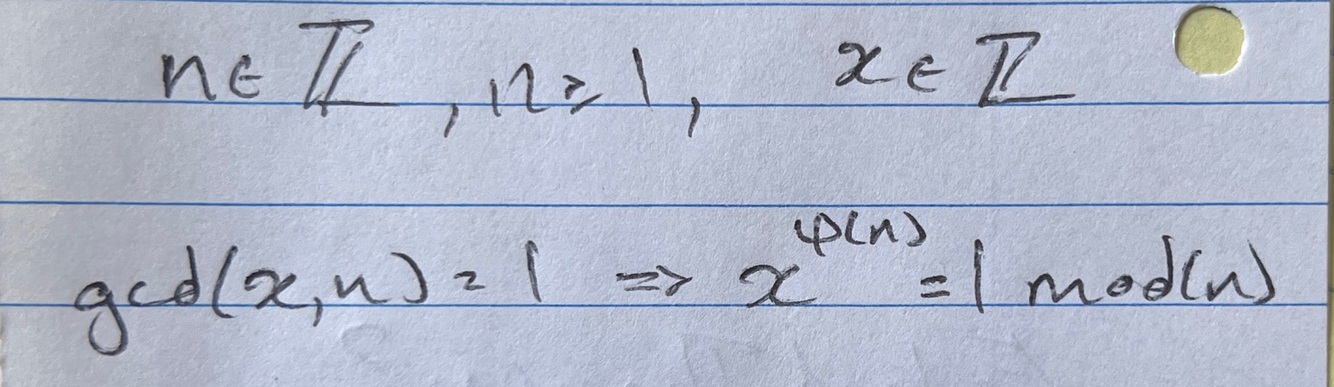 n ∈ ℤ, n ≥ 1, x ∈ ℤ
gcd(x, n) = 1 ⇒ x^φ(n) = 1 mod(n)